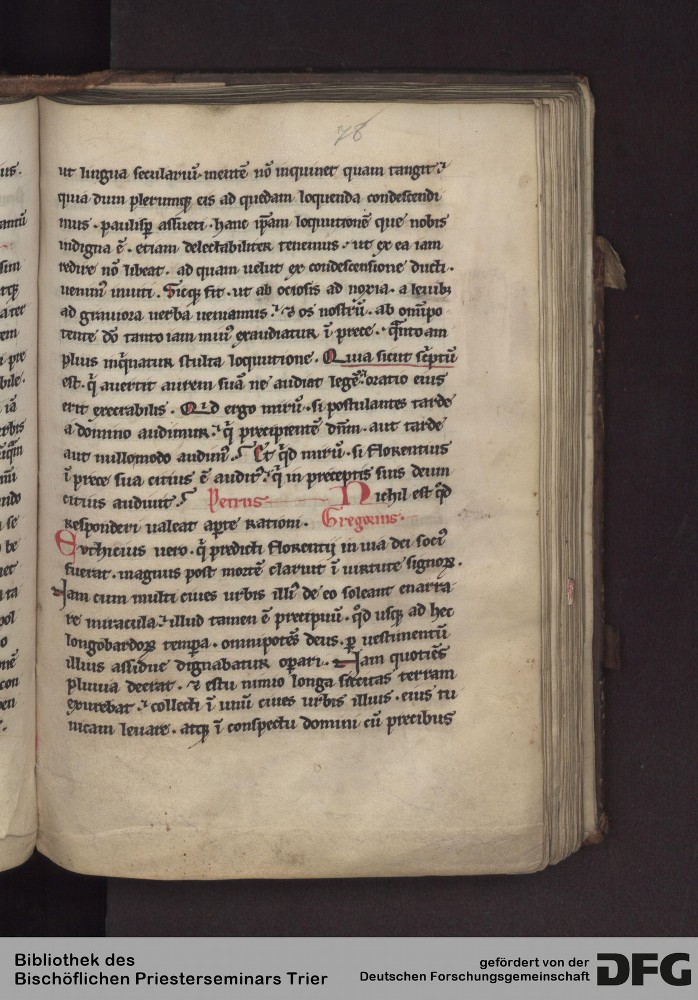 78
ut lingua seculariū mentē nō inquinet quam tangit
quia dum plerumq; eis ad quedam loquenda condescendi
mus · paulisp assueti · hanc ipam loquutionē que nobis
indigna ē · etiam delectabiliter tenemus · ut ex ea iam
redire nō libeat · ad quam uelut ex condescensione ducti ·
uenimꝰ inuiti · Sicq; fit · ut ab ociosis ad noxia · a leuibꝫ
ad grauiora uerba ueniamus · & os nostrū · ab omīpo
tente dō tanto iam minꝰ exaudiatur ī prece · qnto am
plius inqinatur stulta loquutione · Quia sicut scptū
est · qi auertit aurem suā ne audiat legē · oratio eius
erit execrabilis · Qid ergo mirū · si postulantes tarde
a domino audimur · qi precipientē dnm · aut tarde
aut nullomodo audimꝰ · Et qd mirū · si florentius
ī prece sua citius ē auditꝰ · qi in preceptis suis deum
citius audiuit · Petrus Nichil est qd
responderi ualeat apte rationi · Gregorius ·
Euthicius uero · qi predicti florentij in uia dei sociꝰ
fuerat · magnus post mortē claruit ī uirtute signoꝝ ·
Iam cum multi ciues urbis illiꝰ de eo soleant enarra
re miracula · illud tamen ē precipuū · qd usq; ad hec
longobardoꝝ tempa · omnipotēs deus · ꝑ uestimentū
illius assidue dignabatur opari · Iam quotiēs
pluuia deerat · & estu nimio longa siccitas terram
exurebat · collecti ī unū ciues urbis illius · eius tu
nicam leuare · atq; ī conspectu domini cū precibus
Bibliothek des
Bischöflichen Priesterseminars Trier
gefördert von der
Deutschen Forschungsgemeinschaft
DFG